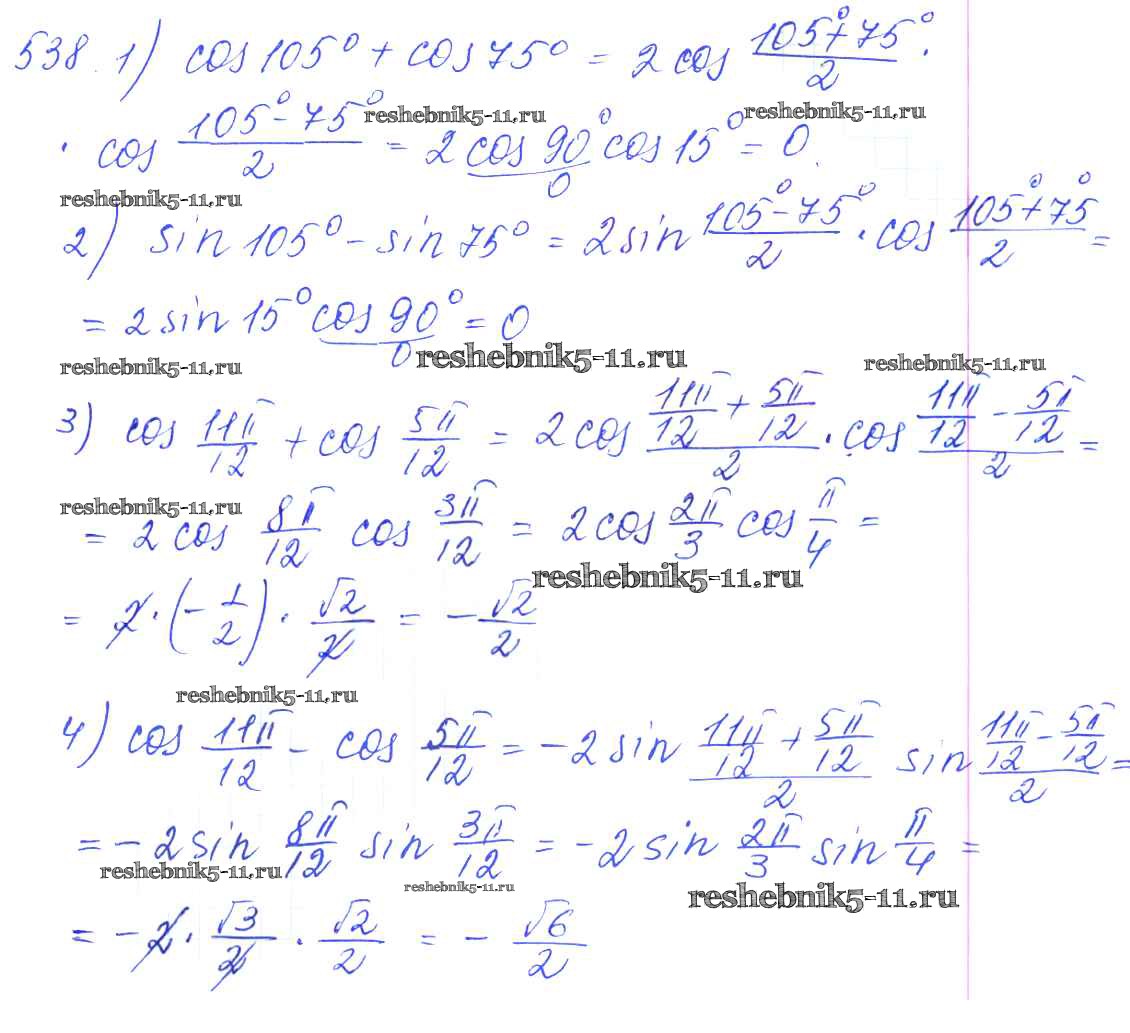 538. 1) cos 105° + cos 75° = 2 cos (105° + 75°)/2 ·
· cos (105° - 75°)/2 = 2 cos 90° cos 15° = 0.
0
reshebnik5-11.ru reshebnik5-11.ru
reshebnik5-11.ru
2) sin 105° - sin 75° = 2 sin (105° - 75°)/2 · cos (105° + 75°)/2 =
= 2 sin 15° cos 90° = 0
0
reshebnik5-11.ru reshebnik5-11.ru reshebnik5-11.ru
3) cos 11π/12 + cos 5π/12 = 2 cos (11π/12 + 5π/12)/2 · cos (11π/12 - 5π/12)/2 =
reshebnik5-11.ru
= 2 cos 8π/12 cos 3π/12 = 2 cos 2π/3 cos π/4 =
reshebnik5-11.ru
= 2 · (-1/2) · √2/2 = -√2/2
reshebnik5-11.ru
4) cos 11π/12 - cos 5π/12 = -2 sin (11π/12 + 5π/12)/2 sin (11π/12 - 5π/12)/2 =
= -2 sin 8π/12 sin 3π/12 = -2 sin 2π/3 sin π/4 =
reshebnik5-11.ru reshebnik5-11.ru reshebnik5-11.ru
= -2 · √3/2 · √2/2 = -√6/2